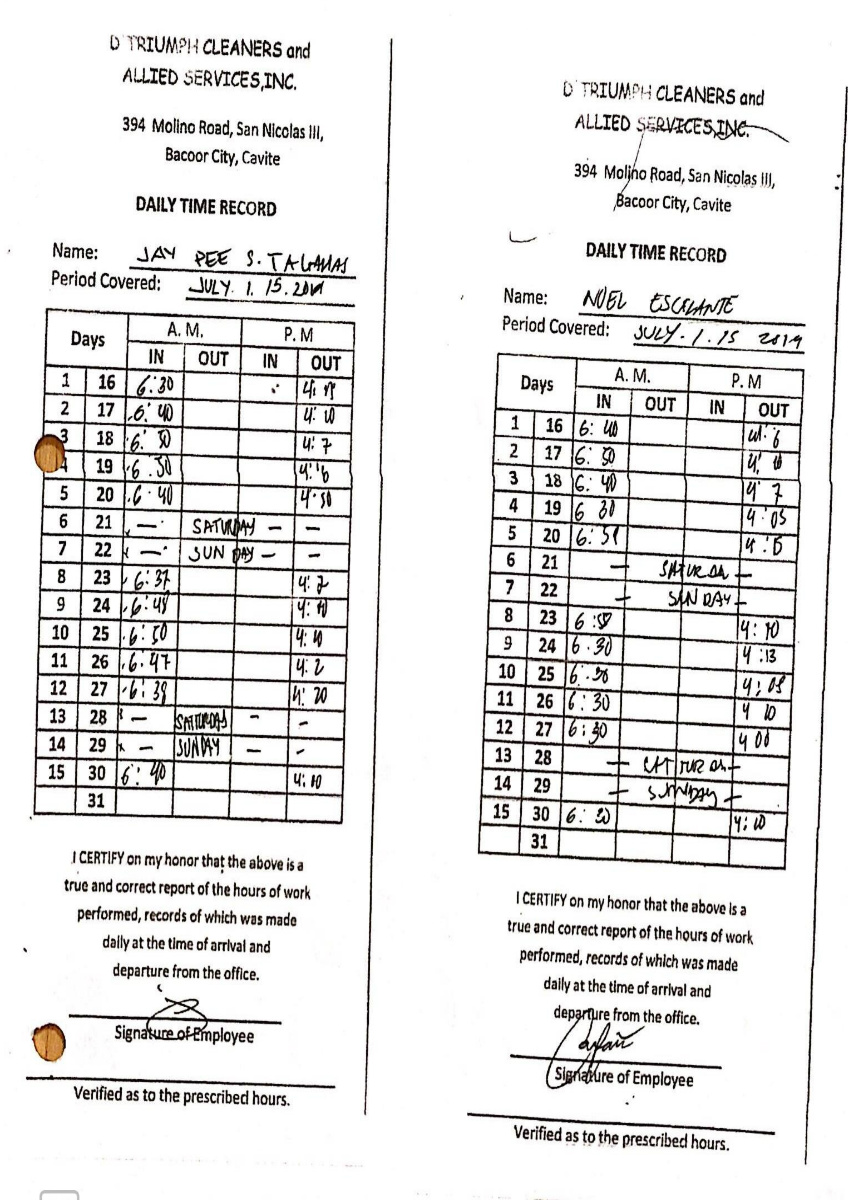 D'TRIUMPH CLEANERS and
ALLIED SERVICES,INC.
394 Molino Road, San Nicolas III,
Bacoor City, Cavite
DAILY TIME RECORD
Name: JAY PEE S.
Period Covered: JULY. 1. 15.
Days A. M. P. M
IN OUT IN OUT
1 16 6:30
2 17 6:40 4:10
3 18 6:30 4:7
4 19 6:30 4:6
5 20 6.40 4:30
6 21 — SATURDAY — —
7 22 — SUNDAY — —
8 23 6:37 4:2
9 24 6:48 4:10
10 25 6:50 4:10
11 26 6:47 4:2
12 27 6:39 4:20
13 28 — SATURDAY — —
14 29 — SUNDAY — —
15 30 6:40 4:10
31
I CERTIFY on my honor that the above is a
true and correct report of the hours of work
performed, records of which was made
daily at the time of arrival and
departure from the office.
Signature of Employee
Verified as to the prescribed hours.
D'TRIUMPH CLEANERS and
ALLIED SERVICES,INC.
394 Molino Road, San Nicolas III,
Bacoor City, Cavite
DAILY TIME RECORD
Name: NOEL ESCELANTE
Period Covered: JULY. 1. 15 2019
Days A. M. P. M
IN OUT IN OUT
1 16 6:40
2 17 6:50 4:10
3 18 6:40 4 7
4 19 6 30 4:05
5 20
6 21 — —
7 22 — SUNDAY —
8 23 4:10
9 24 6.30 4:13
10 25 4:05
11 26 6:30 4 10
12 27 6:30 4 00
13 28 — —
14 29 — SUNDAY —
15 30 4:10
31
I CERTIFY on my honor that the above is a
true and correct report of the hours of work
performed, records of which was made
daily at the time of arrival and
departure from the office.
Signature of Employee
Verified as to the prescribed hours.